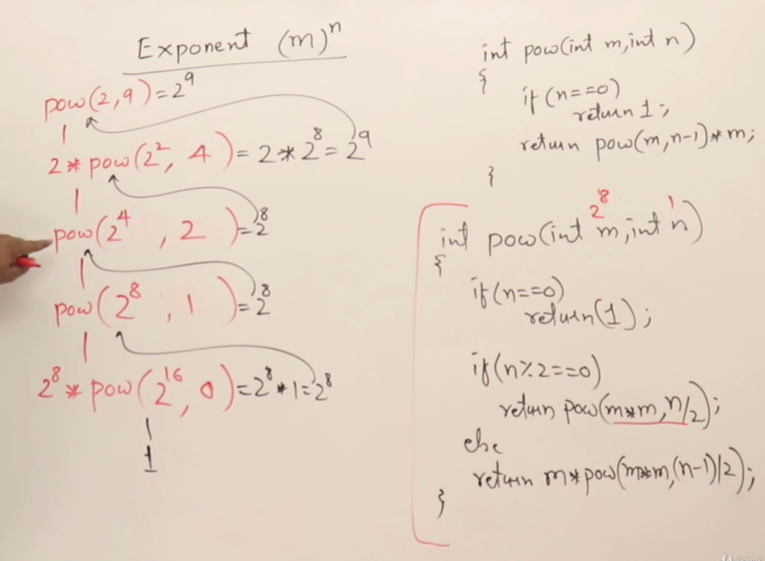 Exponent (m)ⁿ
pow(2,9)=2⁹
2*pow(2², 4)=2*2⁸=2⁹
pow(2⁴, 2)=2⁸
pow(2⁸, 1)=2⁸
2⁸*pow(2¹⁶, 0)=2⁸*1=2⁸
1
int pow(int m,int n)
{
if(n==0)
return 1;
return pow(m,n-1)*m;
}
2⁸ 1
int pow(int m,int n)
{
if(n==0)
return(1);
if(n%2==0)
return pow(m*m,n/2);
else
return m*pow(m*m,(n-1)/2);
}